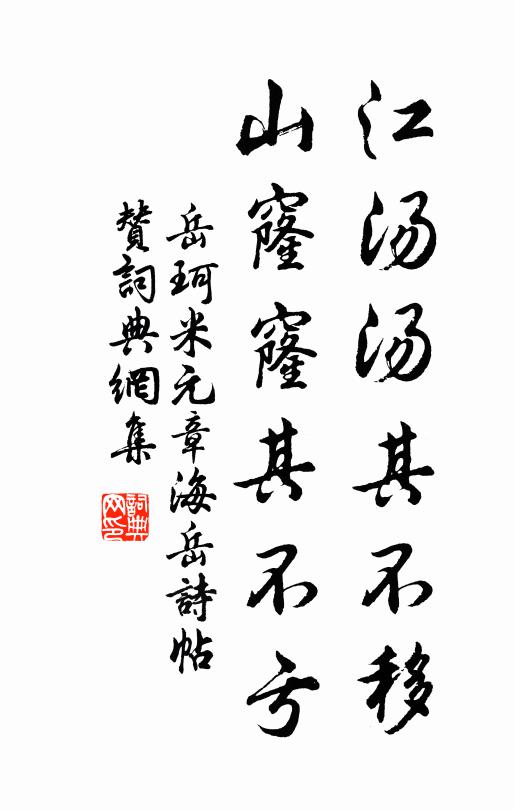 江汤汤其不移
山窿窿其不亏
岳珂米元章海岳詩帖
赞詞典網集
詞典網印